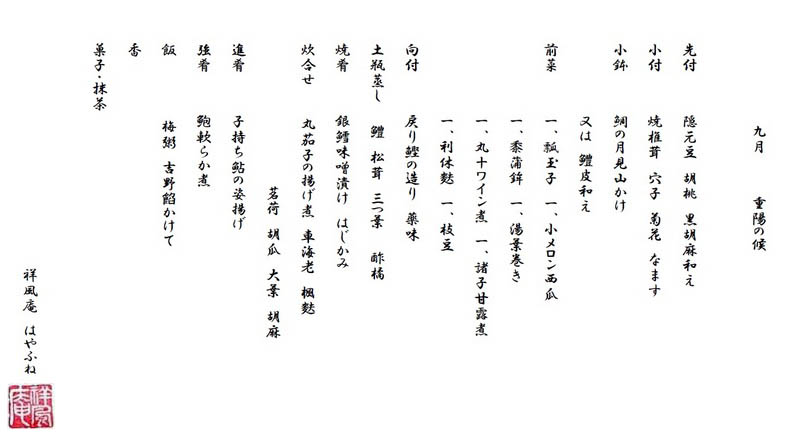 九月　重陽の候
先付　隠元豆　胡桃　黒胡麻和え
小付　焼椎茸　穴子　菊花　なます
小鉢　鯛の月見山かけ
又は　鱧皮和え
前菜　一、瓢玉子　一、小メロン西瓜
一、黍蒲鉾　一、湯葉巻き
一、丸十ワイン煮　一、諸子甘露煮
一、利休麩　一、枝豆
向付　戻り鰹の造り　薬味
土瓶蒸し　鱧　松茸　三つ葉　酢橘
焼肴　銀鱈味噌漬け　はじかみ
炊合せ　丸茄子の揚げ煮　車海老　楓麩
茗荷　胡瓜　大葉　胡麻
進肴　子持ち鮎の姿揚げ
強肴　鮑軟らか煮
飯　梅粥　吉野餡かけて
香
菓子・抹茶
祥風庵　はやふね
祥風庵